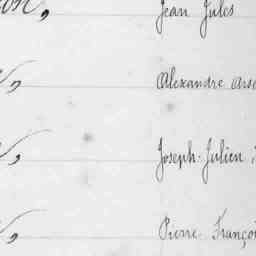 Jean Jules
Alexandre
Joseph-Julien
Pierre François